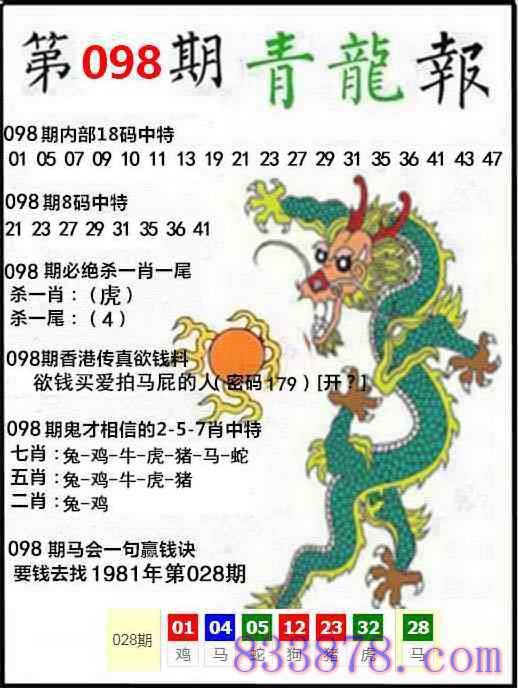 第098期青龍報
098期内部18码中特
01 05 07 09 10 11 13 19 21 23 27 29 31 35 36 41 43 47
098期8码中特
21 23 27 29 31 35 36 41
098期必绝杀一肖一尾
杀一肖：（虎）
杀一尾：（4）
098期香港传真欲钱料
欲钱买爱拍马屁的人(密码179）[开？]
098期鬼才相信的2-5-7肖中特
七肖：兔-鸡-牛-虎-猪-马-蛇
五肖：兔-鸡-牛-虎-猪
二肖：兔-鸡
098期马会一句赢钱诀
要钱去找1981年第028期
028期 01 04 05 12 23 32 28
鸡 马 蛇 狗 猪 虎 马
833878.com